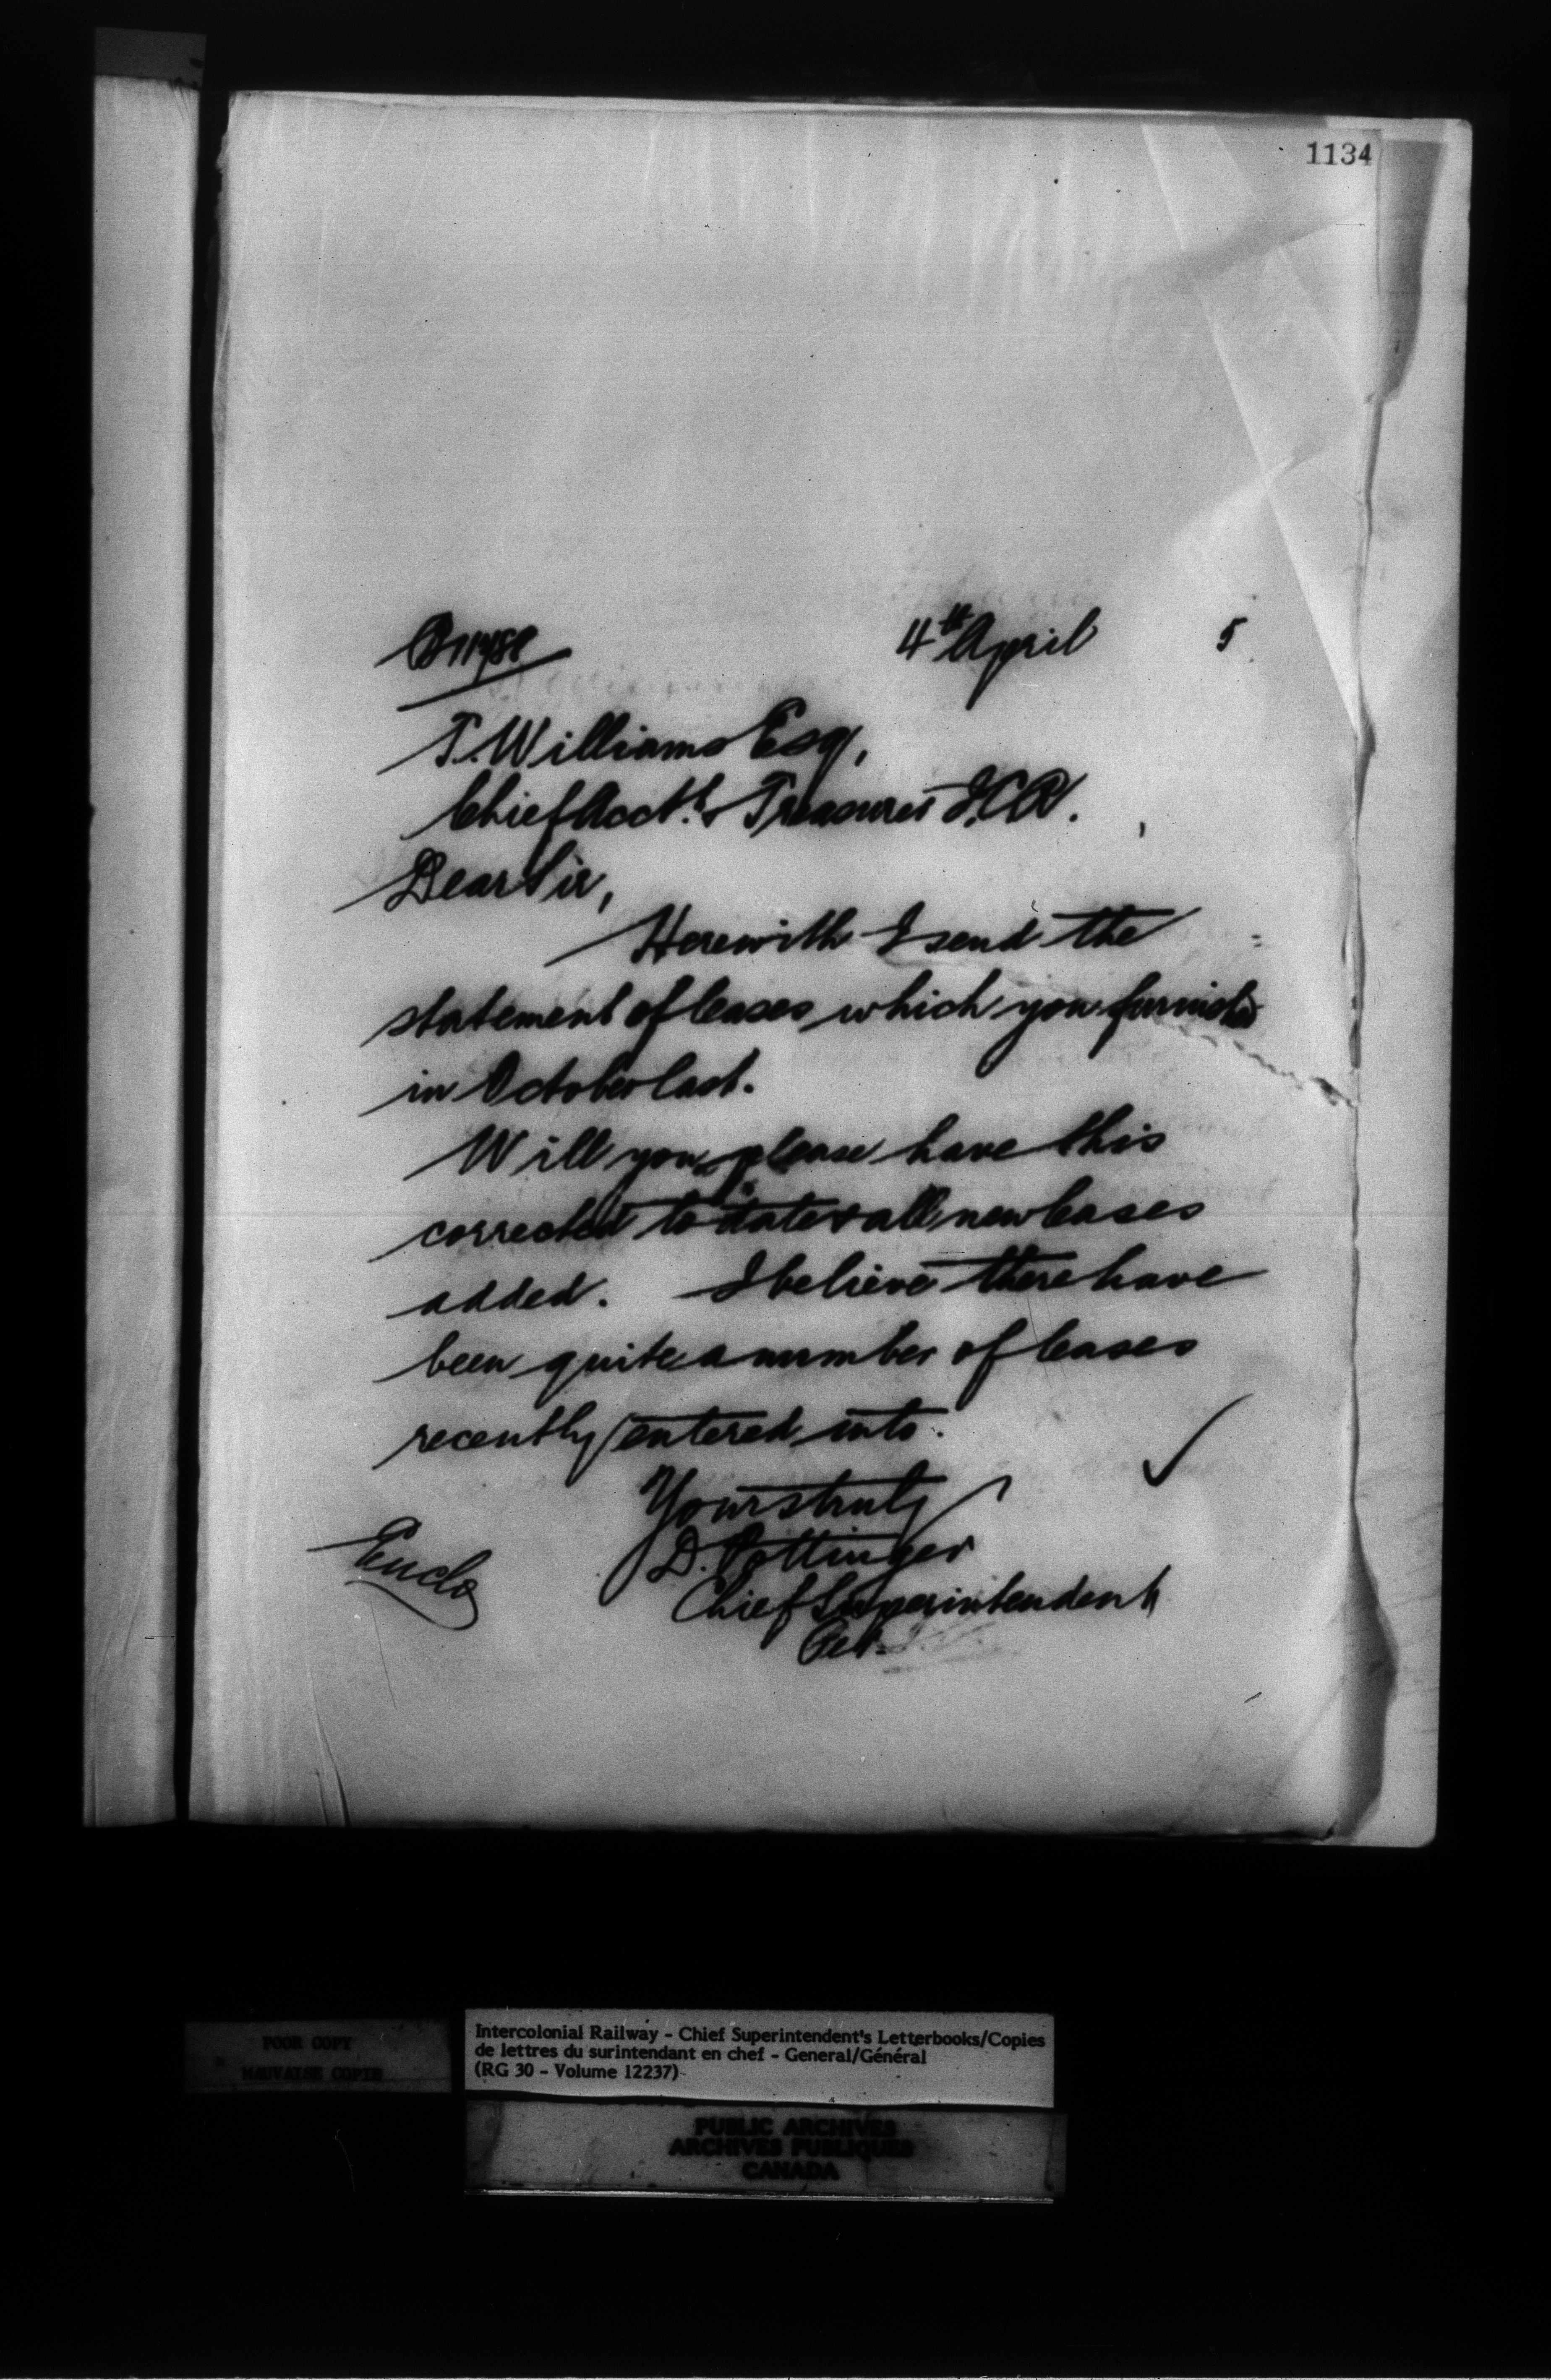 1134
4th April 5
T. Williams Esq,
Chief Acct. & Treasurer I.C.R.
Dear Sir,
Herewith I send the
statement of leases which you furnished
in October last.
Will you please have this
corrected to date & all new leases
added. I believe there have
been quite a number of leases
recently entered into.
Yours truly
D. Pottinger
Enclo
Chief Superintendent
POOR COPY
MAUVAISE COPIE
Intercolonial Railway - Chief Superintendent's Letterbooks/Copies
de lettres du surintendant en chef - General/Général
(RG 30 - Volume 12237)
PUBLIC ARCHIVES
ARCHIVES PUBLIQUES
CANADA